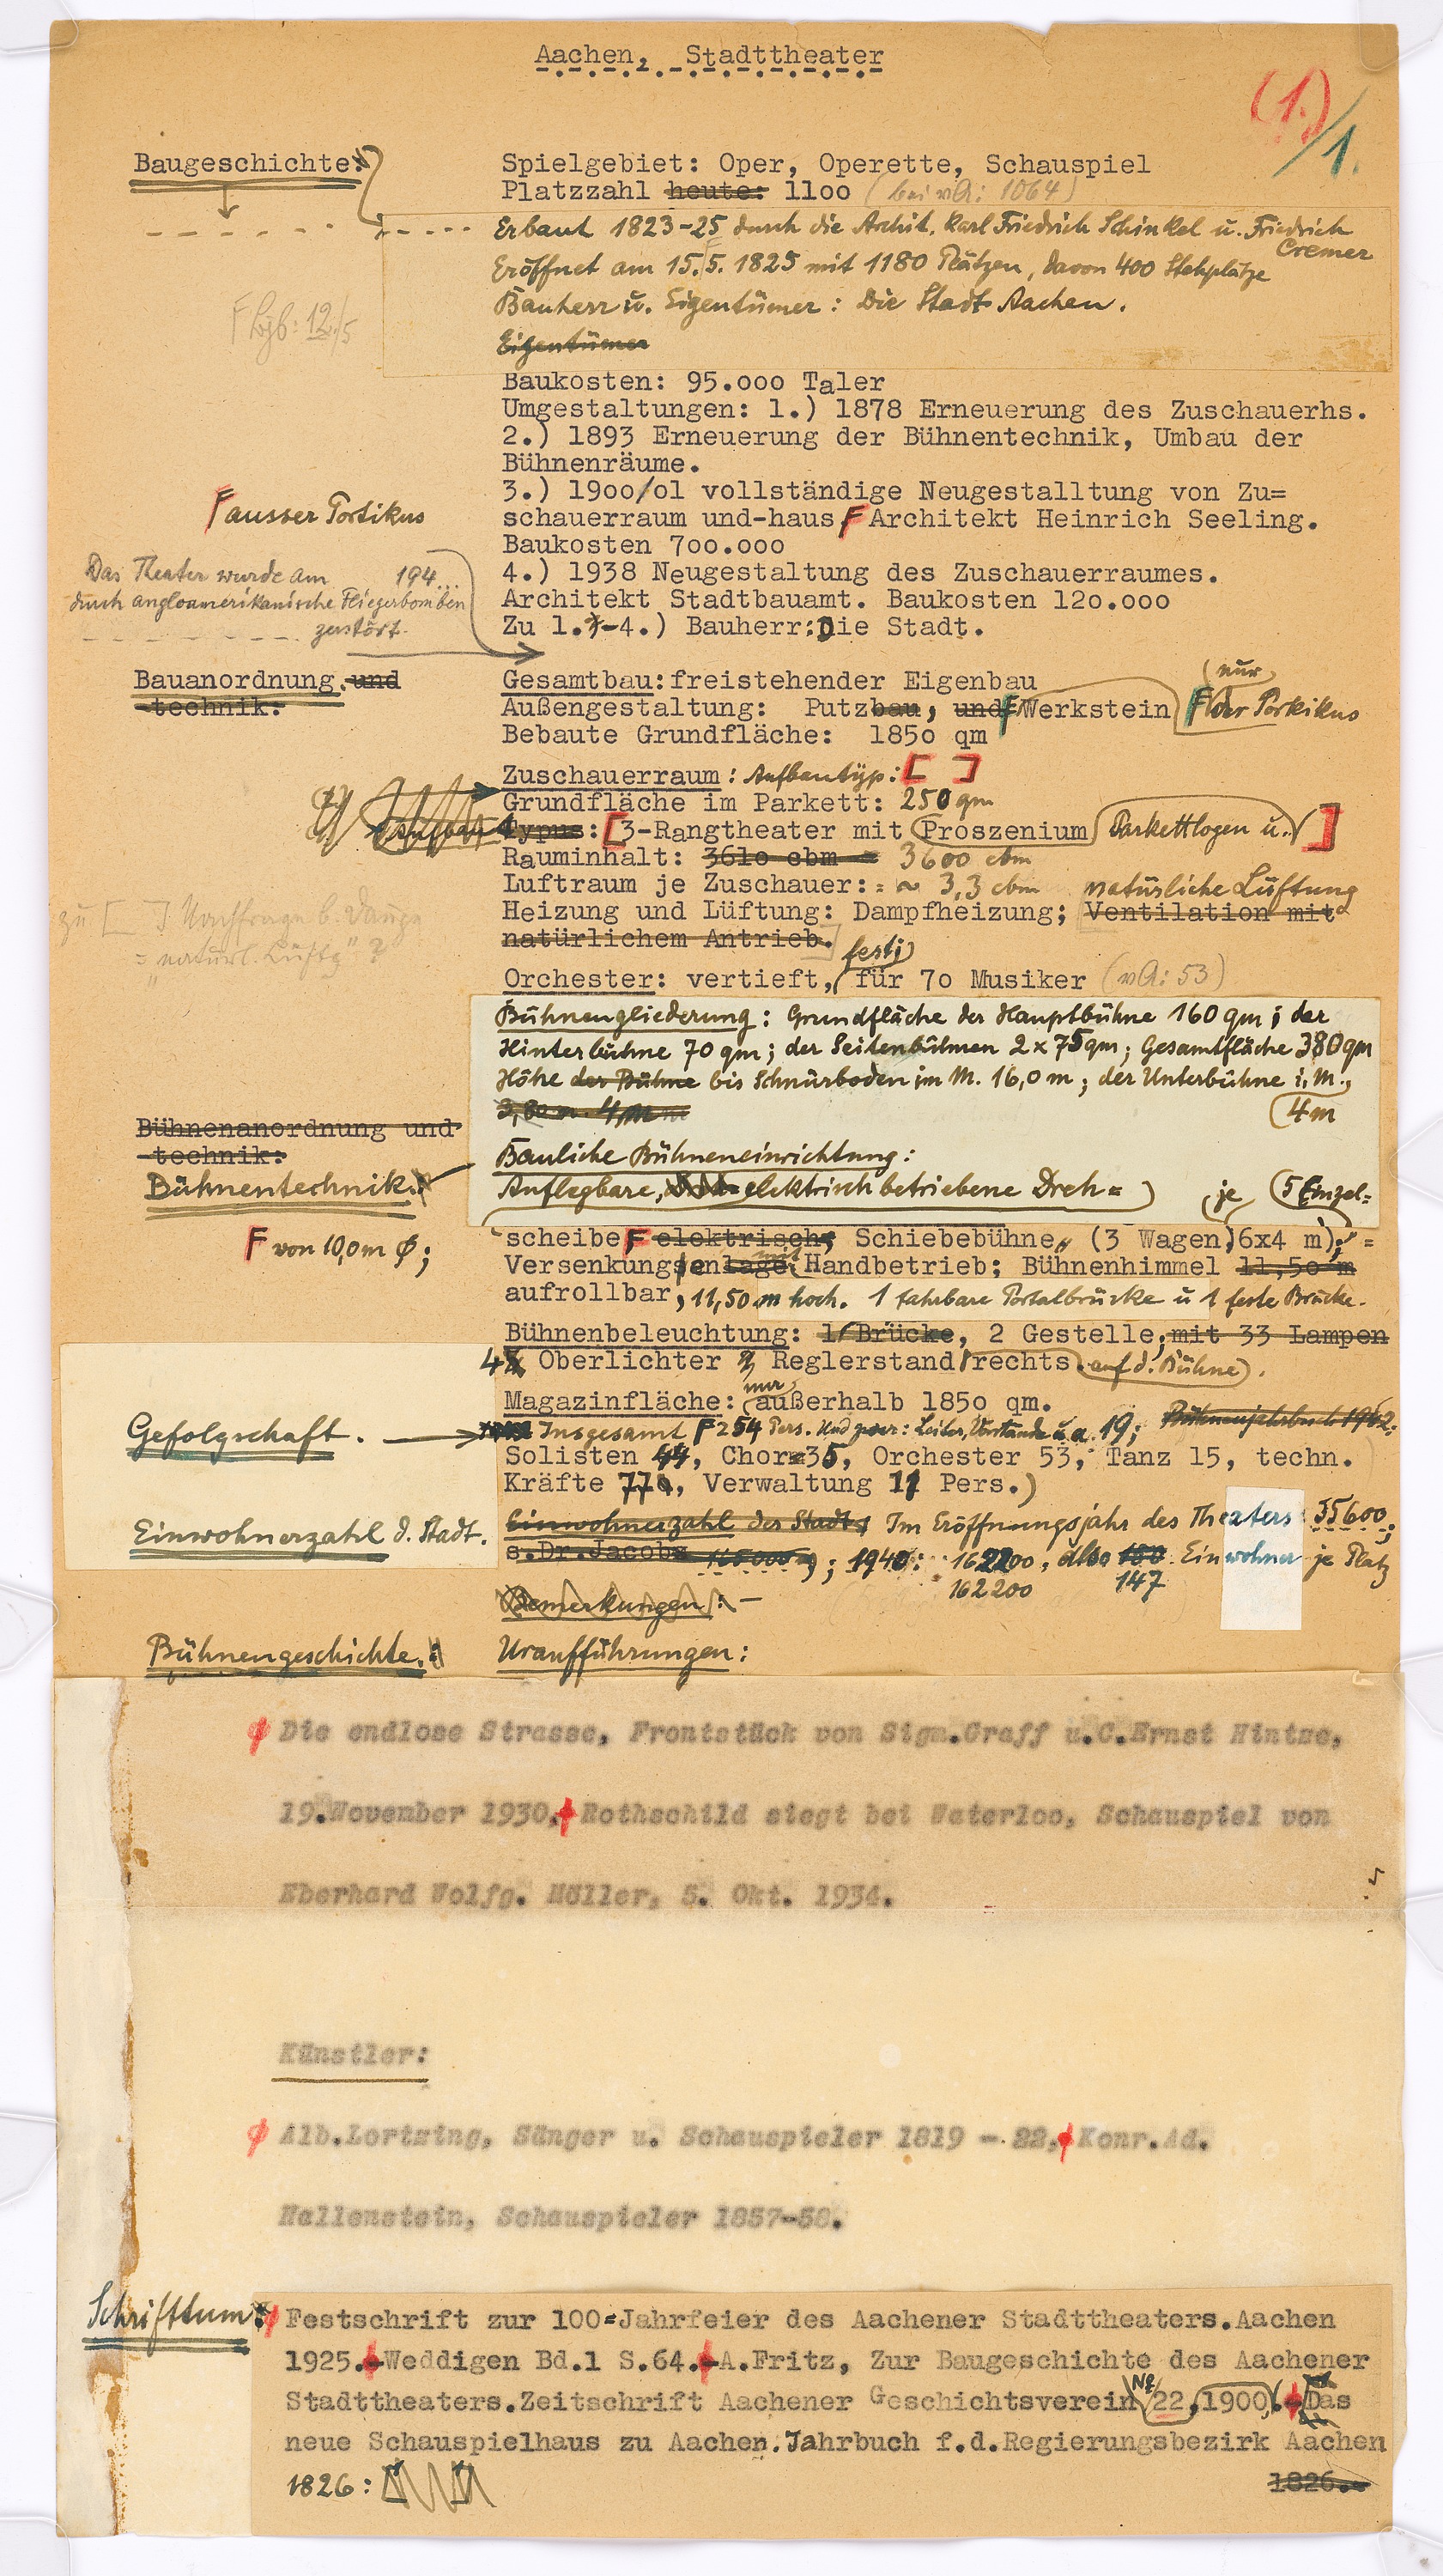 Aachen, Stadttheater
(1.)
1.
Baugeschichte:
Spielgebiet: Oper, Operette, Schauspiel
Platzzahl heute: 11oo (bei vA: 1064)
Erbaut 1823-25 durch die Archit. Karl Friedrich Schinkel u. Friedrich Cremer
Eröffnet am 15.5. 1825 mit 1180 Plätzen, davon 400 Stehplätze
Bauherr u. Eigentümer: Die Stadt Aachen.
Eigentümer
12./5
Baukosten: 95.ooo Taler
Umgestaltungen: 1.) 1878 Erneuerung des Zuschauerhs.
2.) 1893 Erneuerung der Bühnentechnik, Umbau der
Bühnenräume.
3.) 19oo/o1 vollständige Neugestalltung von Zu=
F ausser Portikus
schauerraum und-haus F Architekt Heinrich Seeling.
Baukosten 7oo.ooo
Das Theater wurde am 194...
durch angloamerikanische Fliegerbomben
zerstört.
4.) 1938 Neugestaltung des Zuschauerraumes.
Architekt Stadtbauamt. Baukosten 12o.ooo
Zu 1.-4.) Bauherr: Die Stadt.
Bauanordnung. und
technik:
Gesamtbau: freistehender Eigenbau
Außengestaltung: Putzbau, und F Werkstein F (nur) der Portikus
Bebaute Grundfläche: 185o qm
Zuschauerraum: Aufbautyp: [ ]
Grundfläche im Parkett: 250 qm
Aufbau Typus: [3-Rangtheater mit Proszenium Parkettlogen u. ]
Rauminhalt: 361o cbm = 3600 cbm
Luftraum je Zuschauer: = ~ 3,3 cbm natürliche Lüftung
Heizung und Lüftung: Dampfheizung; Ventilation mit
natürlichem Antrieb.
zu [ ] Nachfrage b.
= "natürl. Lüftg" ?
Orchester: vertieft, fest; für 7o Musiker (vA: 53)
Bühnengliederung: Grundfläche der Hauptbühne 160 qm; der
Hinterbühne 70 qm; der Seitenbühnen 2x75 qm; Gesamtfläche 380 qm
Höhe der Bühne bis Schnürboden im M. 16,0 m; der Unterbühne i. M.,
3,80 m. 4 m
4 m
Bühnenanordnung und
technik:
Bühnentechnik.
Bauliche Bühneneinrichtung:
Auflegbare, elektrisch betriebene Dreh= je (5 Einzel=
F von 10,0 m Ø;
scheibe, F elektrisch, Schiebebühne, (3 Wagen, 6x4 m); =
Versenkungsanlage mit Handbetrieb; Bühnenhimmel 11,5o m
aufrollbar, 11,50 m hoch. 1 fahrbare Portalbrücke u 1 feste Brücke.
Bühnenbeleuchtung: 1 Brücke, 2 Gestelle, mit 33 Lampen
4 Oberlichter, Reglerstand rechts auf d. Bühne).
Magazinfläche: nur außerhalb 185o qm.
Gefolgschaft.
Insgesamt F 254 Pers. Und zwar: Leiter, Vorstände u. a. 19; Bühnenjahrbuch 1942:
Solisten 44, Chor 35, Orchester 53, Tanz 15, techn.
Kräfte 77, Verwaltung 11 Pers.)
Einwohnerzahl d. Stadt.
Einwohnerzahl der Stadt: Im Eröffnungsjahr des Theaters 35600;
s.Dr.Jacobs 165000; 1940: 162200, also 150 Einwohner je Platz
162200 147
Bemerkungen: -
Bühnengeschichte.
Uraufführungen:
Die endlose Strasse, Frontstück von Sigm.Graff u.C.Ernst Hintze,
19.November 1930. Rothschild siegt bei Waterloo, Schauspiel von
Eberhard Wolfg. Möller, 5. Okt. 1934.
Künstler:
Alb.Lortzing, Sänger u. Schauspieler 1819 - 22, Konr.Ad.
Hallenstein, Schauspieler 1857-58.
Schrifttum:
Festschrift zur 100=Jahrfeier des Aachener Stadttheaters.Aachen
1925.-Weddigen Bd.1 S.64.-A.Fritz, Zur Baugeschichte des Aachener
Stadttheaters.Zeitschrift Aachener Geschichtsverein Nr. 22,1900.-Das
neue Schauspielhaus zu Aachen.Jahrbuch f.d.Regierungsbezirk Aachen
1826: 1826.-